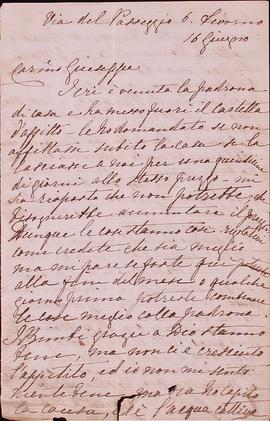 Via del Passeggio 6. Livorno
16 Giugno
Carino Giuseppe
Ieri è venuta la padrona
di casa e ha messo fuori il castello
d'affitto le ho domandato se non
affittasse subito la casa se la
lasciasse a noi per una quindicina
di giorni allo stesso prezzo mi
ha risposto che non potrebbe che
bisognerebbe aumentare il prezzo
Dunque le cose stanno così regolatevi
come credete che sia meglio
ma mi pare se foste qui
alla fine del mese o qualche
giorno prima potreste combinare
le cose meglio colla padrona.
I Bimbi grazie a Dio stanno
bene, ma non li è cresciuto
l'appetito, ed io non mi sento
niente bene ma già ho capito
la causa, è l'acqua cattiva